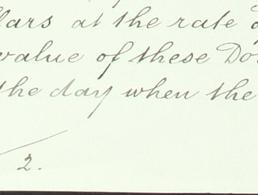 llars at the rate
value of these Do
the day when the
2.